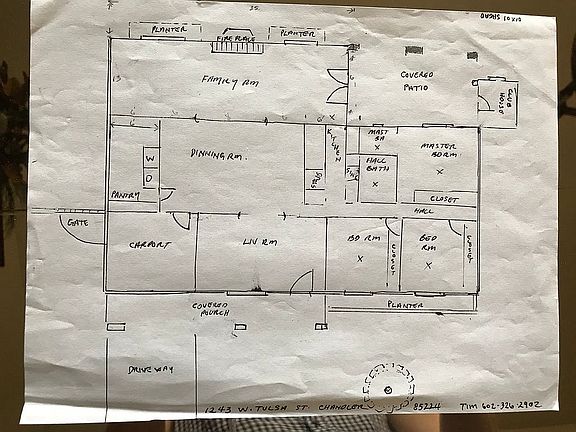 10X10 SHEAD
35
PLANTER
FIRE PLACE
PLANTER
13
FAMILY RM
COVERED
PATIO
CLUB
HOUSE
6
DINNING RM.
KITCHEN
MAST
BA
MASTER
BDRM
HALL
BATH
W
D
PANTRY
CLOSET
HALL
GATE
CARPORT
LIV RM
BD RM
CLOSET
BED
RM
CLOSET
COVERED
POURCH
PLANTER
DRIVE WAY
1243 W. TULSA ST. CHANDLER 85224 TIM 602-326-2902